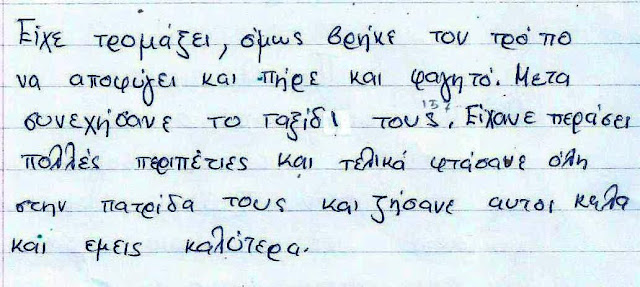 Είχε τρομάξει, όμως βρήκε τον τρόπο
να αποφύγει και πήρε και φαγητό. Μετα
συνεχήσανε το ταξίδι τους. Είχανε περάσει
πολλές περιπέτιες και τελικά φτάσανε όλη
στην πατρίδα τους και ζήσανε αυτοι καλα
και εμεις καλύτερα.